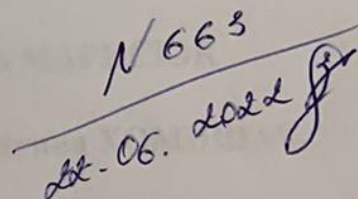 N 663
22.06.2022